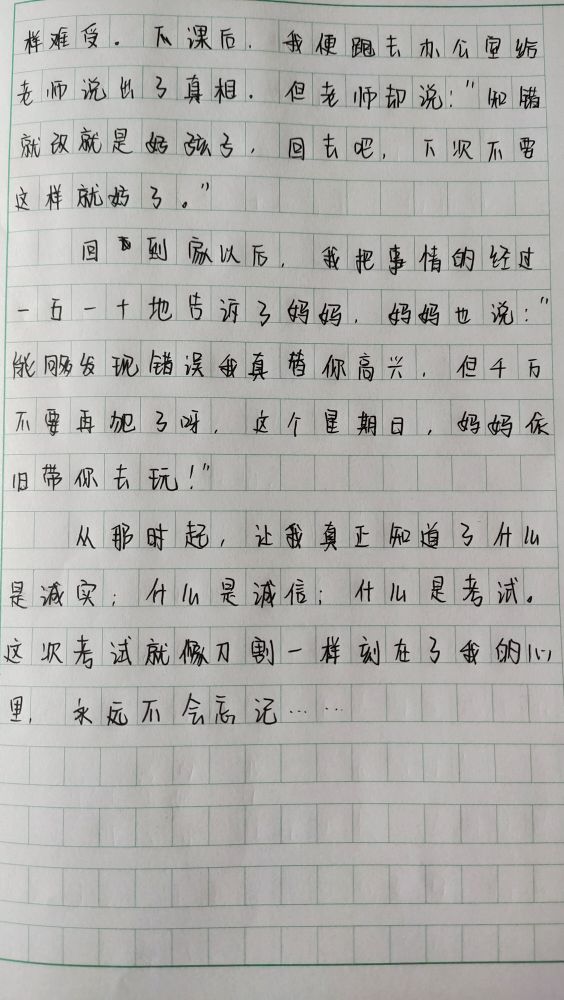 样难受。下课后，我便跑去办公室给
老师说出了真相。但老师却说："知错
就改就是好孩子，回去吧，下次不要
这样就好了。"
回到家以后，我把事情的经过
一五一十地告诉了妈妈，妈妈也说："
能够发现错误我真替你高兴，但千万
不要再犯了呀，这个星期日，妈妈依
旧带你去玩！"
从那时起，让我真正知道了什么
是诚实；什么是诚信；什么是考试。
这次考试就像刀割一样刻在了我的心
里，永远不会忘记……